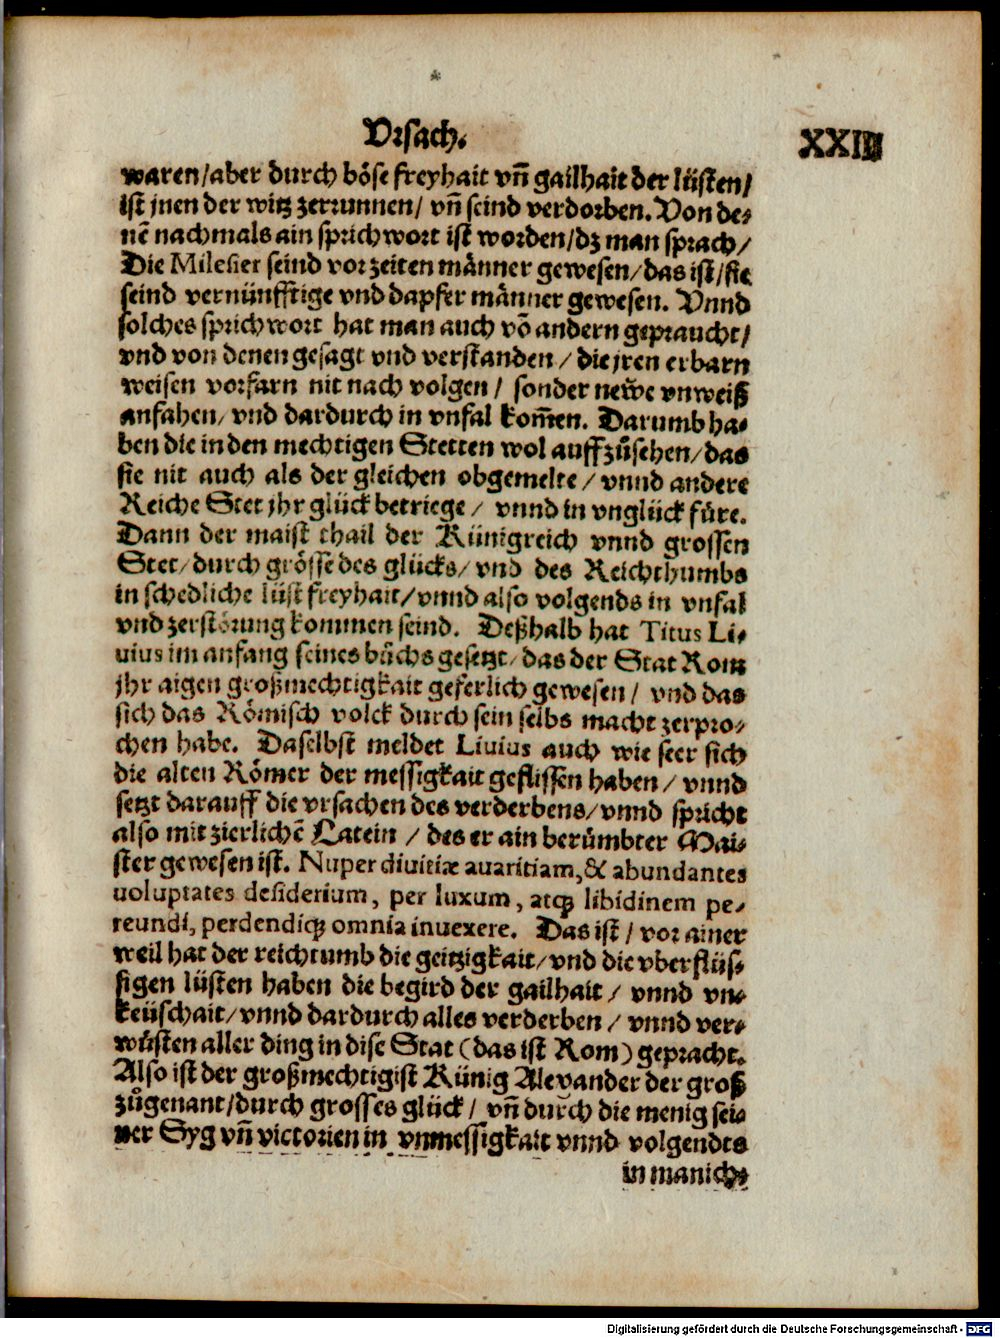 Vrsach.
XXIII
waren/aber durch böse freyhait vñ gailhait der lüsten/
ist jnen der witz zerrunnen/ vñ seind verdorben. Von de-
nẽ nachmals ain sprichwort ist worden/dz man sprach/
Die Milesier seind vor zeiten männer gewesen/das ist/sie
seind vernünfftige vnd dapfer männer gewesen. Vnnd
solches sprichwort hat man auch võ andern gepraucht/
vnd von denen gesagt vnd verstanden/ die jren erbarn
weisen vorfarn nit nach volgen/ sonder newe vnweiß
anfahen/ vnd dardurch in vnfal kom̃en. Darumb ha-
ben die in den mechtigen Stetten wol auffzůsehen/das
sie nit auch als der gleichen obgemelte/ vnnd andere
Reiche Stet jhr glück betriege/ vnnd in vnglück füre.
Dann der maist thail der Künigreich vnnd grossen
Stet/durch grösse des glücks/ vnd des Reichthumbs
in schedliche lüst freyhait/vnnd also volgends in vnfal
vnd zerstörung kommen seind. Deßhalb hat Titus Li-
uius im anfang seines bůchs gesetzt/das der Stat Rom
jhr aigen großmechtigkait geferlich gewesen/ vnd das
sich das Römisch volck durch sein selbs macht zerpro-
chen habe. Daselbst meldet Liuius auch wie seer sich
die alten Römer der messigkait geflissen haben/ vnnd
setzt darauff die vrsachen des verderbens/vnnd spricht
also mit zierlichẽ Latein/ des er ain berümbter Mai-
ster gewesen ist. Nuper diuitiæ auaritiam,& abundantes
uoluptates desiderium, per luxum, atqꝫ libidinem pe-
reundi, perdendiqꝫ omnia inuexere. Das ist/ vor ainer
weil hat der reichtumb die geitzigkait/vnd die vberflüs-
sigen lüsten haben die begird der gailhait/ vnnd vn-
keüschait/vnnd dardurch alles verderben/ vnnd ver-
wüsten aller ding in dise Stat (das ist Rom) gepracht.
Also ist der großmechtigist Künig Alexander der groß
zůgenant/durch grosses glück/ vñ durch die menig sei-
ner Syg vñ victorien in vnmessigkait vnnd volgendts
in manich-
Digitalisierung gefördert durch die Deutsche Forschungsgemeinschaft - DFG